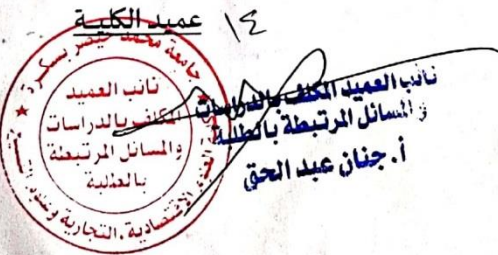 عميد الكليـة
جامعة محمد خيضر بسكرة
نائب العميد
المكلف بالدراسات
والمسائل المرتبطة
بالطلبة
الاقتصادية، التجارية
نائب العميد المكلف بالدراسات
و المسائل المرتبطة بالطلبة
أ. جنان عبد الحق